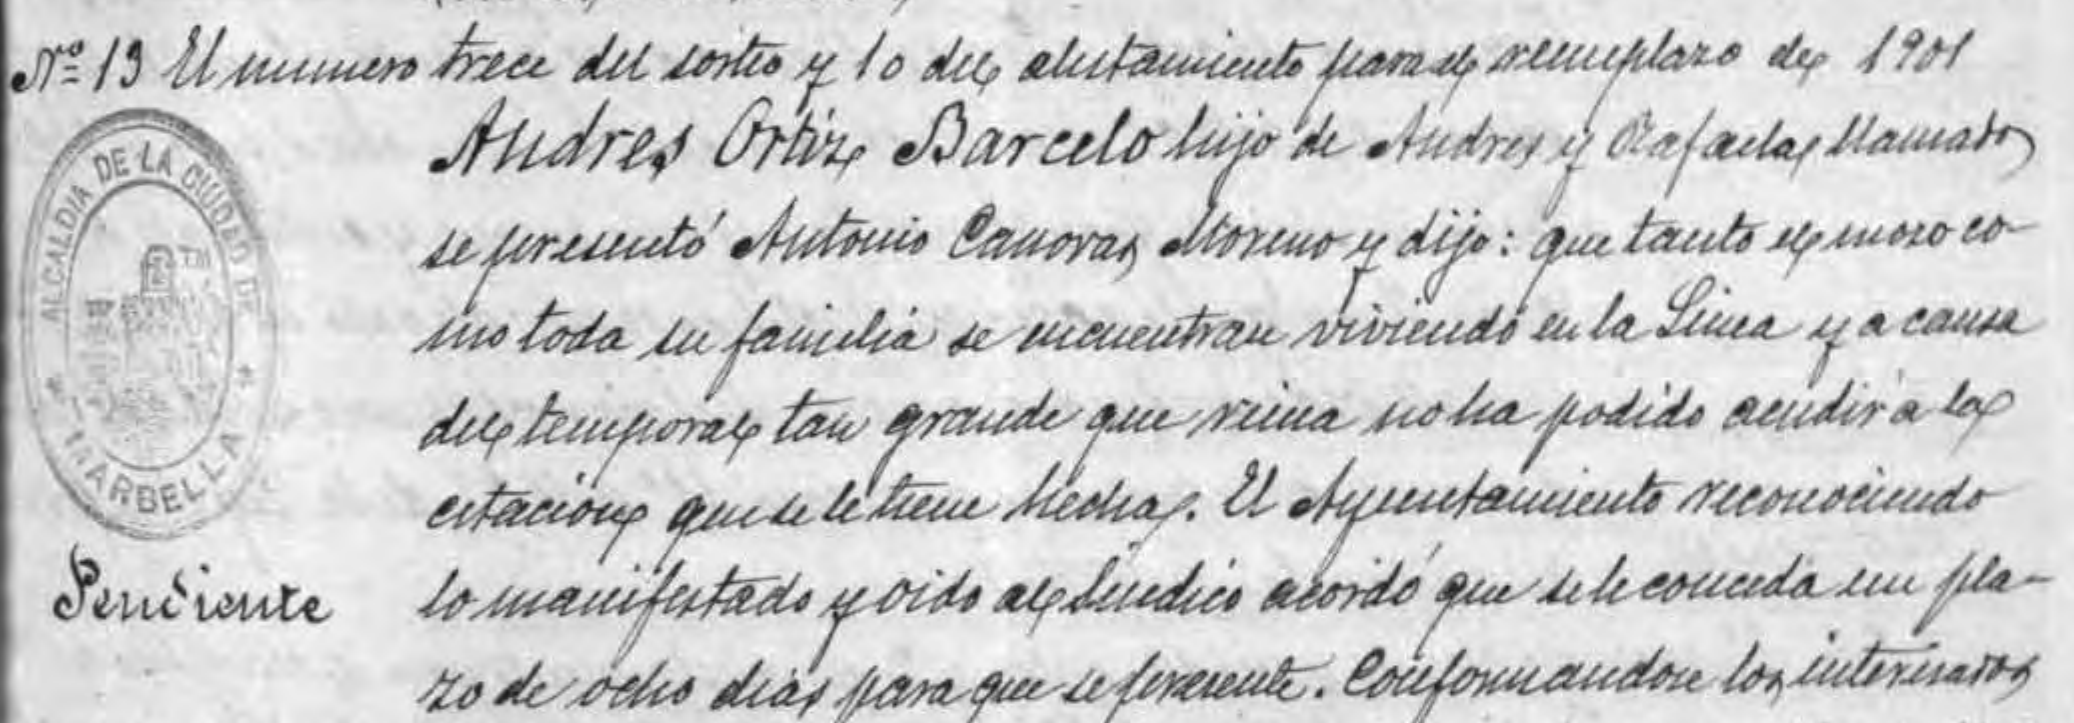 Nº 13 El numero trece del sorteo y 10 del alistamiento para el reemplazo de 1901
Andres Ortiz Barcelo hijo de Andres y Rafaela, llamado
se presentó Antonio Canovas Moreno y dijo: que tanto el mozo co-
mo toda su familia se encuentran viviendo en la Linea y a causa
del temporal tan grande que reina no ha podido acudir a la
citacion que se le tiene hecha. El Ayuntamiento reconociendo
lo manifestado y oido al Sindico acordó que se le conceda un pla-
zo de ocho dias para que se presente. Conformandose los interesados
ALCALDIA DE LA CIUDAD DE
* MARBELLA *
Pendiente